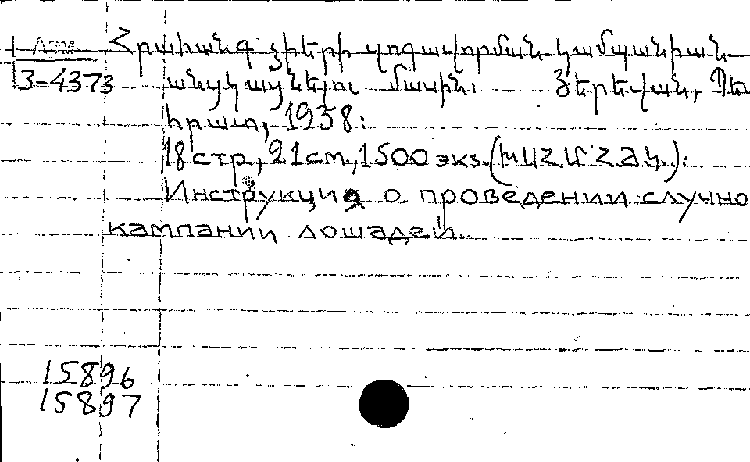 Հրահանգ ձիերի զուգավորման կամպանիան
3-4373
անցկացնելու մասին. Յերեվան, Պե
հրատ, 1938:
18 стр., 21 см, 1500 экз. (ԽՍՀՄ ՀՀԱԿ).
Инструкция о проведении случно
кампании лошадей.
15896
15897